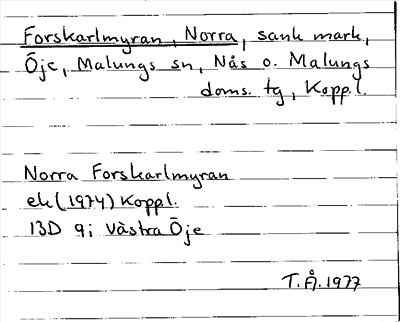 Forskarlmyran, Norra, sank mark,
Öje, Malungs sn, Nås o. Malungs
doms. tg, Koppl.
Norra Forskarlmyran
ek (1974) Koppl.
13D 9i Västra Öje
T.Å. 1977